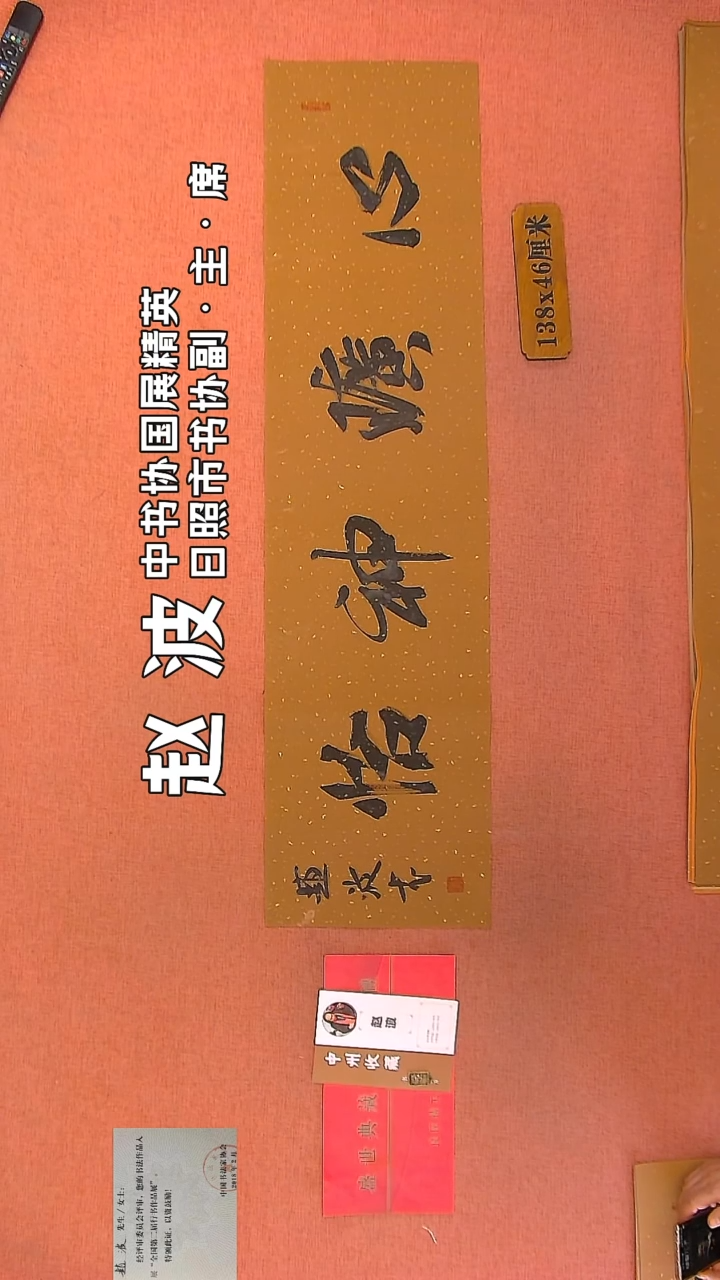 赵波
中书协国展精英
日照市书协副·主·席
心曠神怡
趙波书
138x46厘米
赵波
中州收藏
盛世典藏
赵波 先生/女士:
经评审委员会评审，您的书法作品入
展“全国第二届行书作品展”。
特颁此证，以资鼓励！
中国书法家协会